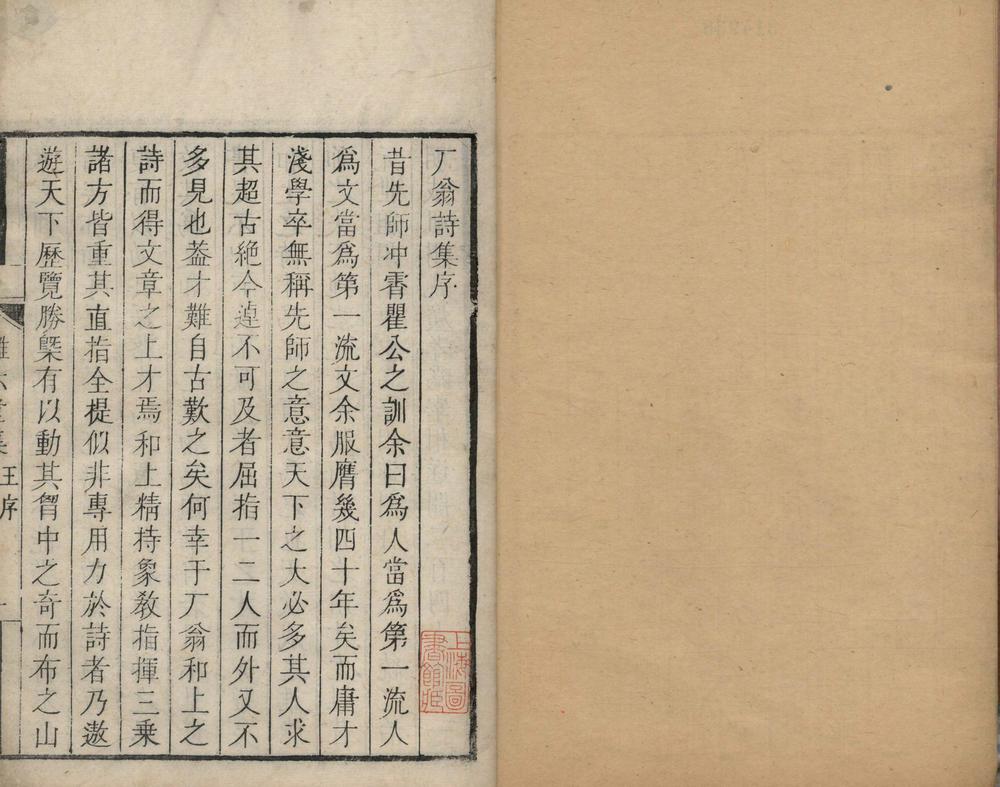 厂翁詩集序
昔先師冲霄瞿公之訓余曰爲人當爲第一流人
爲文當爲第一流文余服膺幾四十年矣而庸才
淺學卒無稱先師之意意天下之大必多其人求
其超古絶今逴不可及者屈指一二人而外又不
多見也葢才難自古歎之矣何幸于厂翁和上之
詩而得文章之上才焉和上精持象敎指揮三乗
諸方皆重其直指全提似非專用力於詩者乃遨
遊天下歷覽勝槩有以動其胷中之奇而布之山
王序
上海圖
書館